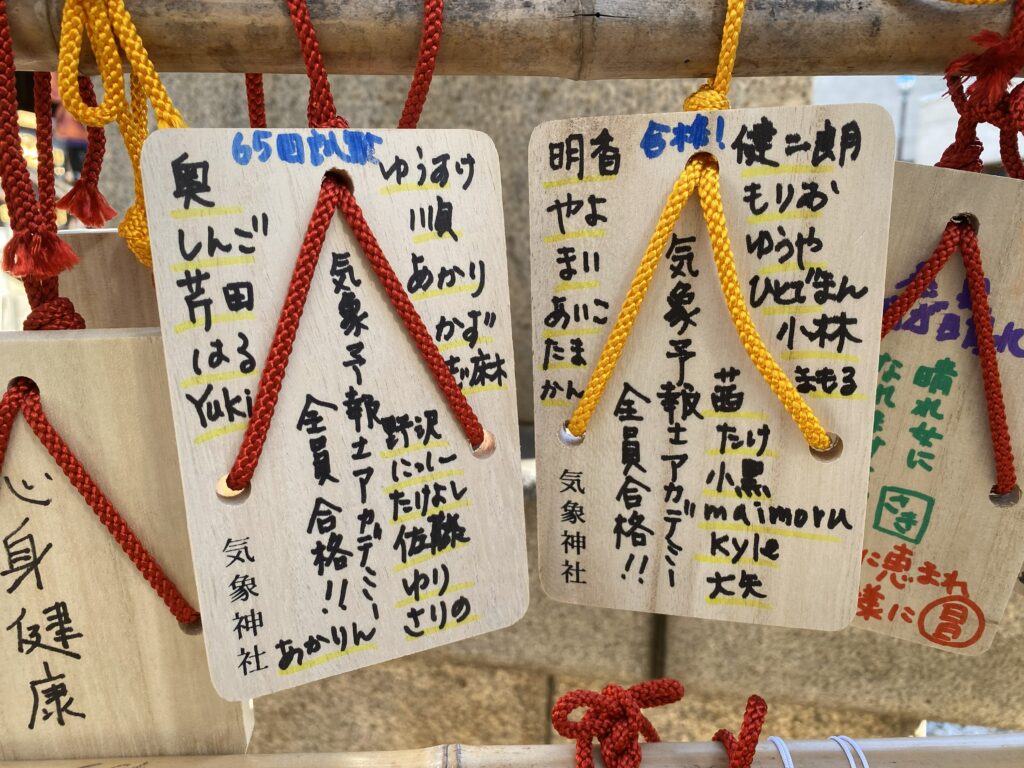 心身健康
奥
しんご
芹田
はる
Yuki
65回
ゆうすけ
川順
あかり
かず
気象予報士アカデミー
全員合格!!
野沢
にっしー
たけよし
佐藤
ゆり
さりの
あかりん
気象神社
合格!
明香
やよ
まい
あいこ
たま
かん
健二朗
もりお
ゆうや
小林
まもる
気象予報士アカデミー
全員合格!!
茜
たけ
小黒
maimoru
Kyle
大矢
気象神社
晴れせに
さき
に恵まれ
様に